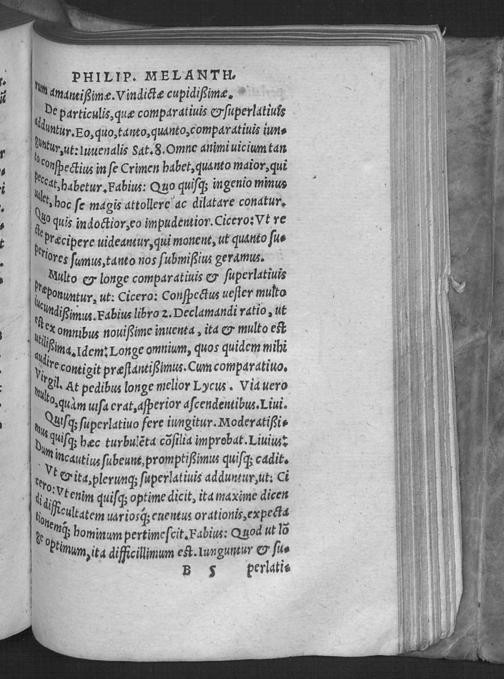 PHILIP. MELANTH.
rum amantißimæ. Vindictæ cupidißimæ.
De particulis, quæ comparatiuis & superlatiuis
adduntur. Eo, quo, tanto, quanto, comparatiuis iun⸗
guntur, ut: Iuuenalis Sat. 8. Omne animi uicium tan
to conspectius in se Crimen habet, quanto maior, qui
peccat, habetur. Fabius: Quo quisq; ingenio minus
ualet, hoc se magis attollere ac dilatare conatur.
Quo quis indoctior, eo impudentior. Cicero: Vt re
cte præcipere uideantur, qui monent, ut quanto su⸗
periores sumus, tanto nos submißius geramus.
Multo & longe comparatiuis & superlatiuis
præponuntur, ut: Cicero: Conspectus uester multo
iucundißimus. Fabius libro 2. Declamandi ratio, ut
est ex omnibus nouißime inuenta, ita & multo est
utilißima. Idem: Longe omnium, quos quidem mihi
audire contigit præstantißimus. Cum comparatiuo.
Virgil. At pedibus longe melior Lycus. Via uero
multo, quàm uisa erat, asperior ascendentibus. Liui.
Quisq; superlatiuo fere iungitur. Moderatißi⸗
mus quisq; hæc turbulẽta cõsilia improbat. Liuius:
Dum incautius subeunt, promptißimus quisq; cadit.
Vt & ita, plerunq; superlatiuis adduntur, ut: Ci
cero: Vt enim quisq; optime dicit, ita maxime dicen
di difficultatem uariosq́; euentus orationis, expecta
tionemq́; hominum pertimescit. Fabius: Quod ut lõ
ge optimum, ita difficillimum est. Iunguntur & su⸗
B 5 perlati⸗